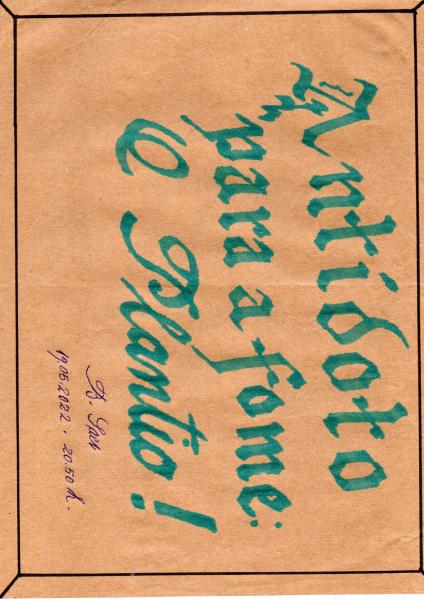 Antídoto
para a fome:
O Plantio!
19.05.2022. 20.50 h.